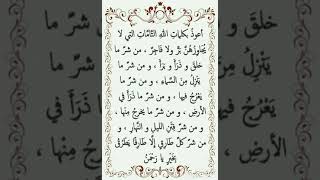 أعوذُ بكلماتِ اللهِ التامَّاتِ التي لا
يُجاوِزُهُنَّ بَرٌّ ولا فاجرٌ ، من شرِّ ما
خلقَ و ذَرَأَ و بَرَأَ ، و من شرِّ ما
يَنْزِلُ مِنَ السَّماءِ ، و من شرِّ ما
يَعْرُجُ فيها ، و من شرِّ ما ذَرَأَ في
الأرضِ ، و من شرِّ ما يخرجُ مِنْها ،
و من شرِّ فِتَنِ الليلِ و النَّهارِ ، و
من شرِّ كلِّ طارِقٍ إلَّا طارقًا يَطْرُقُ
بخيرٍ يا رَحْمَنُ